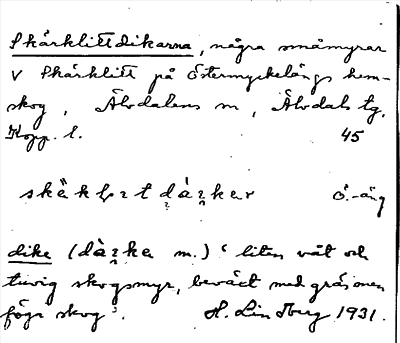 Skärklittdikarna, några småmyrar
V Skärklitt på Östermyckelängs hem-
skog, Älvdalens sn, Älvdals tg,
Kopp. l. 45
Ö.-äng
dike (dàıke m.) ‘liten våt och
tuvig skogsmyr, beväxt med gräs men
föga skog’. H. Lindberg 1931.